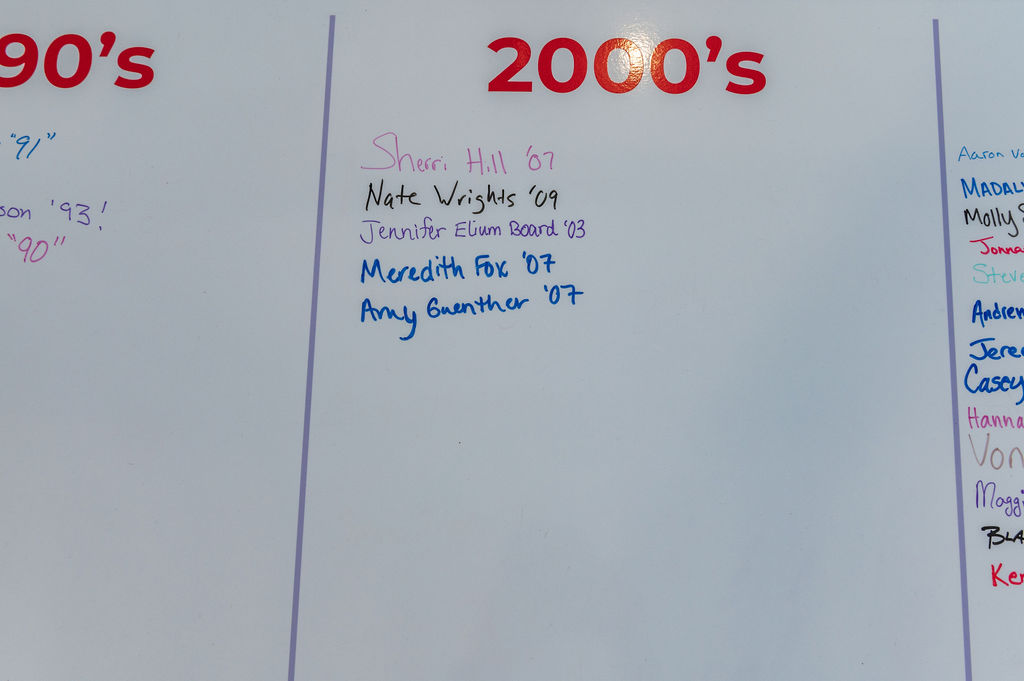 90's
"91"
son '93!
"90"
2000's
Sherri Hill '07
Nate Wrights '09
Jennifer Elium Board '03
Meredith Fox '07
Amy Guenther '07
Aaron
MADALY
Molly
Jonna
Steve
Andrew
Jere
Casey
Hanna
Von
Maggi
BLA
Ker